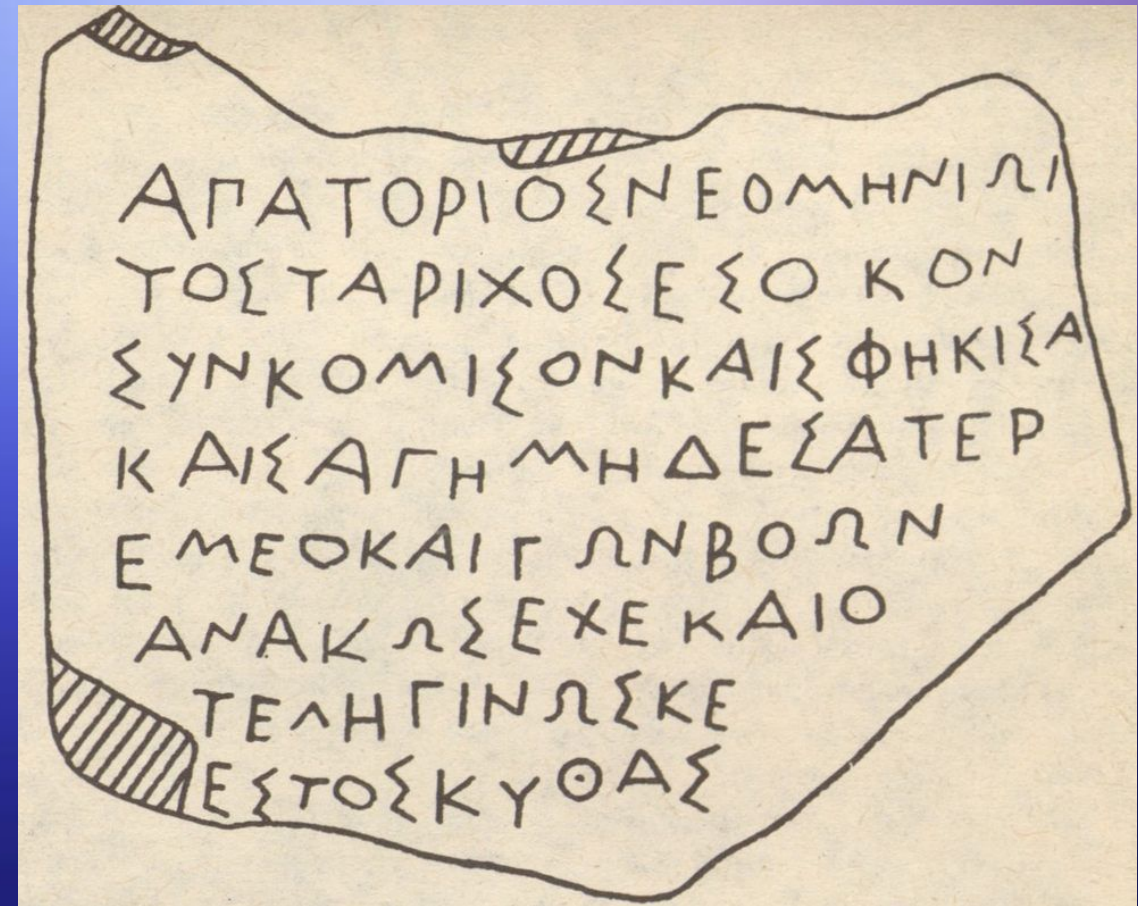 ΑΠΑΤΟΡΙΟΣΝΕΟΜΗΝΙΩΙ
ΤΟΣΤΑΡΙΧΟΣΕΣΟΚΟΝ
ΣΥΝΚΟΜΙΣΟΝΚΑΙΣΦΗΚΙΣΑ
ΚΑΙΣΑΓΗΜΗΔΕΣΑΤΕΡ
ΕΜΕΟΚΑΙΓΩΝΒΟΩΝ
ΑΝΑΚΩΣΕΧΕΚΑΙΟ
ΤΕΛΗΓΙΝΩΣΚΕ
ΕΣΤΟΣΚΥΘΑΣ